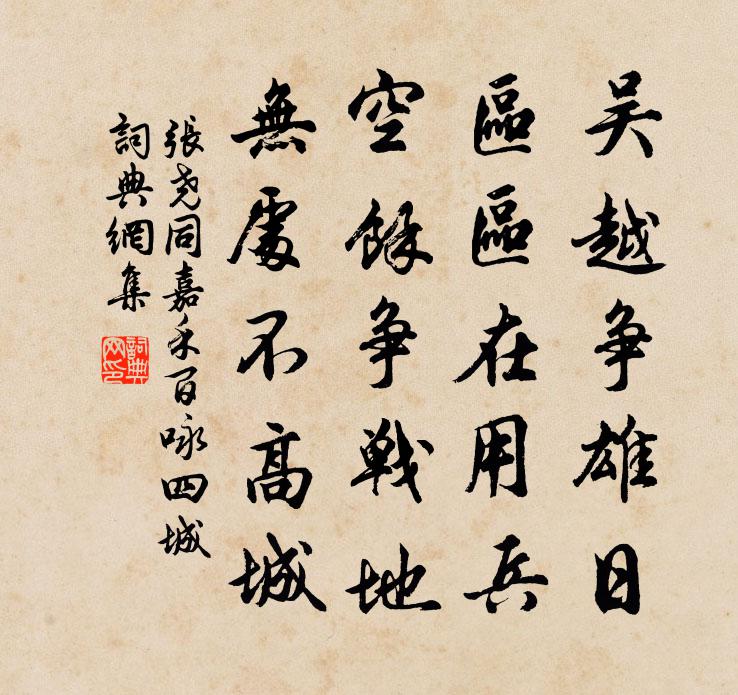 吳越爭雄日
區區在用兵
空餘爭戰地
無處不高城
張尧同嘉禾百咏四城
詞典網集
詞典网印